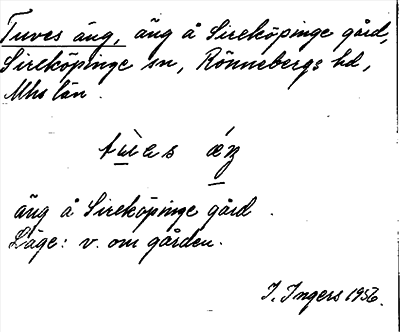 Tuves äng, äng å Sireköpinge gård,
Sireköpinge sn, Rönnebergs hd,
Mhs län.
äng å Sireköpinge gård.
Läge: v. om gården.
I. Ingers 1956.